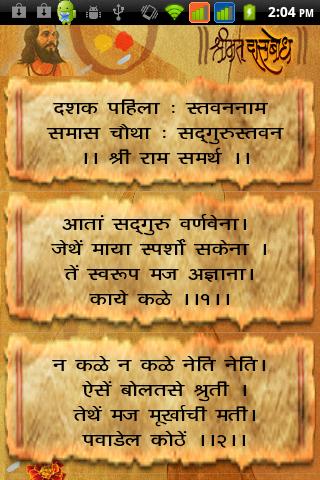 2:04 PM
श्रीमत दासबोध
दशक पहिला : स्तवननाम
समास चौथा : सद्‌गुरुस्तवन
।। श्री राम समर्थ ।।
आतां सद्‌गुरु वर्णवेना।
जेथें माया स्पर्शों सकेना ।
तें स्वरूप मज अज्ञाना।
काये कळे ।।१।।
न कळे न कळे नेति नेति।
ऐसें बोलतसे श्रुती ।
तेथें मज मूर्खाची मती।
पवाडेल कोठें ।।२।।